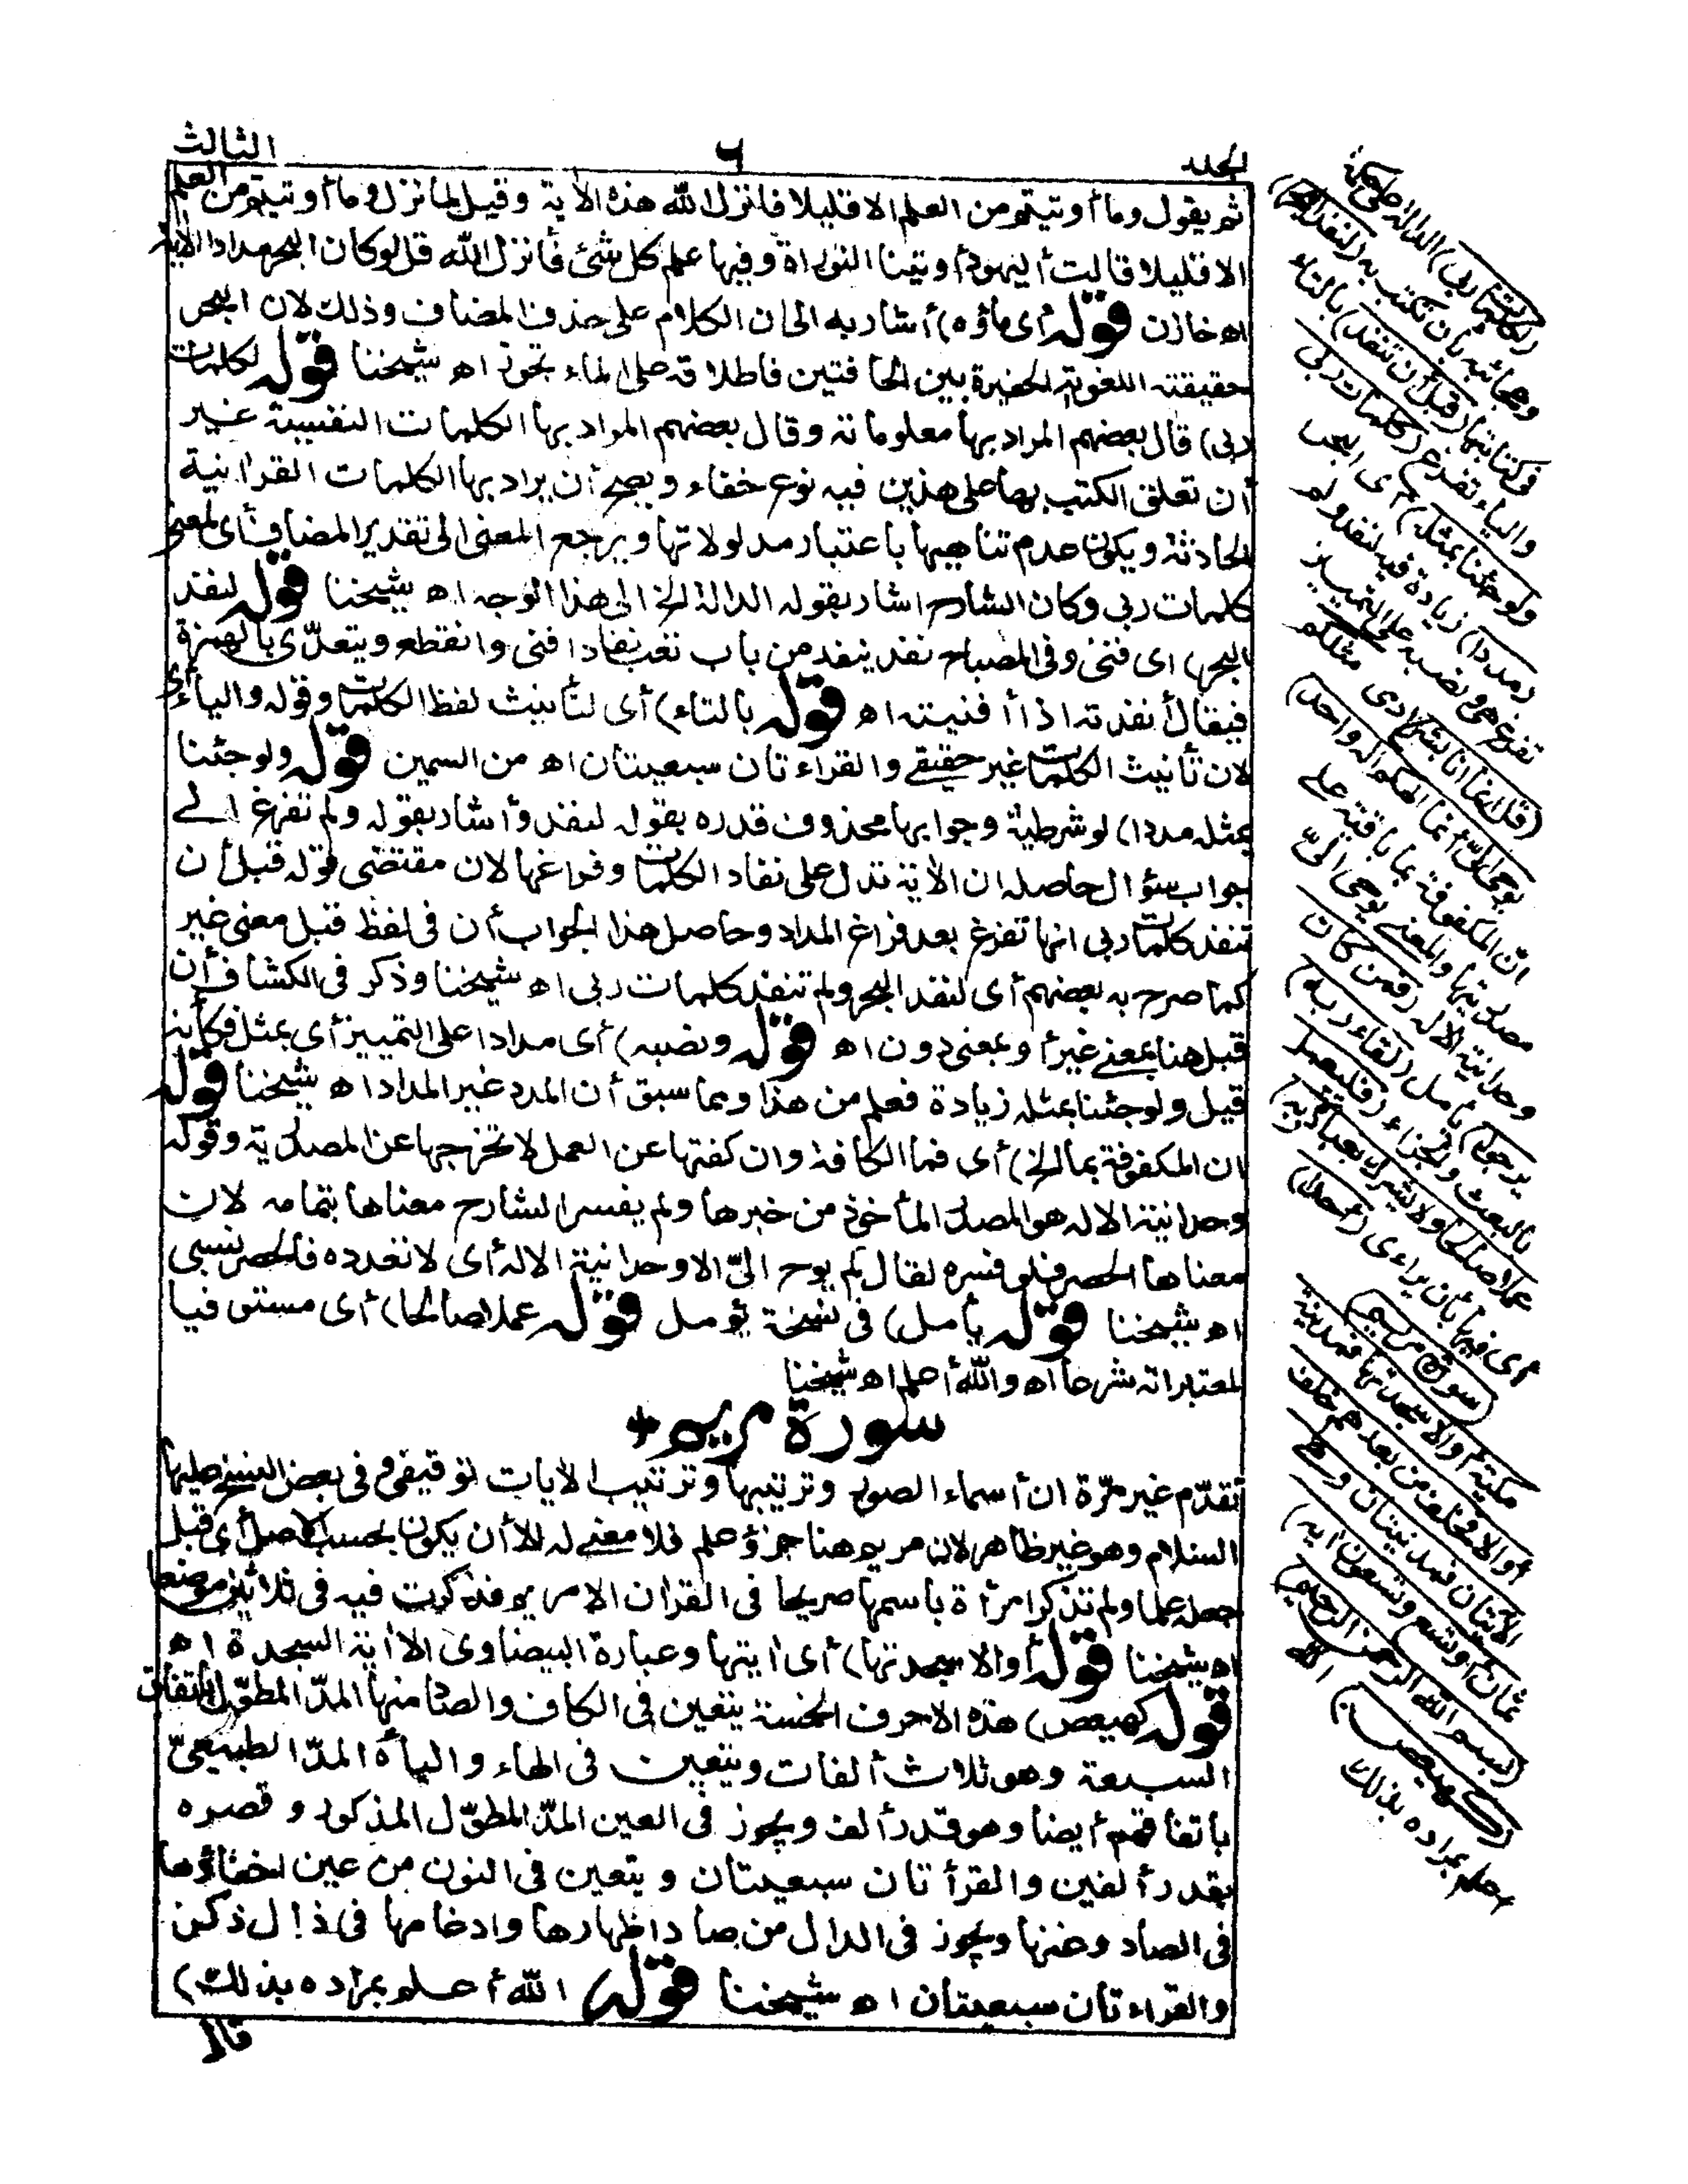 الجلد ٦ الثالث
ثم يقول وما أوتيتم من العلم الا قليلا فانزل الله هذه الأية وقيل لما نزل وما أوتيتم من العلم
الا قليلا قالت أليهود أوتينا التوراة وفيها علم كل شئ فأنزل الله قل لوكان البحر مدادا الأية
اه خازن قوله أى ماؤه) أشار به الى ان الكلام على حذف المضاف وذلك لان البحر
حقيقته اللغوية الحفيرة بين الحافتين فاطلاقه على الماء تجوز اه شيخنا قوله لكلمات
ربى) قال بعضهم المراد بها معلوماته وقال بعضهم المراد بها الكلمات النفسية غير
أن تعلق الكتب بها على هذين فيه نوع خفاء ويصح أن يراد بها الكلمات القرانية
الحادثة ويكون عدم تناهيها باعتبار مدلولاتها ويرجع المعنى الى تقدير المضاف أى لمعنى
كلمات ربى وكان الشارح اشار بقوله الدالة الخ الى هذا الوجه اه شيخنا قوله لنفد
البحر) اى فنى وفى المصباح نفد ينفد من باب تعب نفادا فنى وانقطع ويتعدّى بالهمزة
فيقال أنفدته اذا أفنيته اه قوله بالتاء) أى لتأنيث لفظ الكلمات وقوله والياء أى
لان تأنيث الكلمات غير حقيقے والقراءتان سبعيتان اه من السمين قوله ولوجئنا
بمثله مددا) لو شرطية وجوابها محذوف قدره بقوله لنفد وأشار بقوله ولم تفرغ الے
جواب سؤال حاصله ان الأية تدل على نفاد الكلمات وفراغها لان مقتضى قوله قبل أن
تنفد كلمات ربى انها تفرغ بعد فراغ المداد وحاصل هذا الجواب أن فى لفظ قبل معنى غير
كما صرح به بعضهم أى لنفد البحر ولم تنفد كلمات ربى اه شيخنا وذكر فى الكشاف أن
قبل هنا بمعنے غير أو بمعنى دون اه قوله ونصبه) أى مدادا على التمييز أى بمثل فكأنه
قيل ولوجئنا بمثله زيادة فعلم من هذا ومما سبق أن المدد غير المداد اه شيخنا قوله
ان المكفوفة بما الخ) أى فما الكافة وان كفتها عن العمل لا تخرجها عن المصدرية وقوله
وحدانية الاله هو المصدر المأخوذ من خبرها ولم يفسر الشارح معناها بتمامه لان
معناها الحصر فلو فسره لقال لم يوح الىّ الا وحدانية الاله أى لا تعدده فالحصر نسبى
اه شيخنا قوله يأمل) فى نسخة يؤمل قوله عملا صالحا) أى مستوفيا
لمعتبراته شرعا اه والله أعلم اه شيخنا
سورة مريم
تقدّم غير مرّة ان أسماء السور وترتيبها وترتيب الأيات توقيفى وفى بعض النسخ عليها
السلام وهو غير ظاهر لان مريم هنا جزؤ علم فلا معنے له الا أن يكون بحسب الاصل أى قبل
جعله علما ولم تذكر امرأة باسمها صريحا فى القران الا مريم فذكرت فيه فى ثلاثين موضعا
اه شيخنا قوله أو الا سجدتها) أى أيتها وعبارة البيضاوى الا أية السجدة اه
قوله كهيعص) هذه الاحرف الخمسة يتعين فى الكاف والصاد منها المدّ المطوّل باتفاق
السبعة وهو ثلاث ألفات ويتعين فى الهاء والياء المدّ الطبيعىّ
باتفاقهم أيضا وهو قدر ألف ويجوز فى العين المدّ المطوّل المذكور وقصره
بقدر ألفين والقرأتان سبعيتان ويتعين فى النون من عين اخفاؤها
فى الصاد وغنها ويجوز فى الدال من صاد اظهارها وادغامها فى ذال ذكر
والقراءتان سبعيتان اه شيخنا قوله (الله أعلم بمراده بذلك)
قال
لكلمات ربى) الدالة على حكمه
وعجائبه بأن تكتب به (لنفد البحر)
فى كتابتها (قبل أن تنفد) بالتاء
والياء تفرغ (كلمات ربى
ولوجئنا بمثله) أى البحر
(مددا) زيادة فيه لنفد ولم
تفرغ هى ونصبه على التمييز
(قل انما أنا بشر) ادمى مثلكم
يوحى الىّ أنما الهكم اله واحد)
انّ المكفوفة بما باقية على
مصدريتها والمعنے يوحى الىّ
وحدانية الاله (فمن كان
يرجوا) يأمل (لقاء ربه)
بالبعث والجزاء (فليعمل
عملا صالحا ولا يشرك بعبادة ربه)
أى فيها بأن يراءى (أحدا)
سورة مريم
مكية أو الا سجدتها فمدنية
أو الا فخلف من بعدهم خلف
الأيتان فمدنيتان وهے
ثمان أو تسع وتسعون أية)
(بسم الله الرحمن الرحيم
كهيعص) الله
أعلم بمراده بذلك